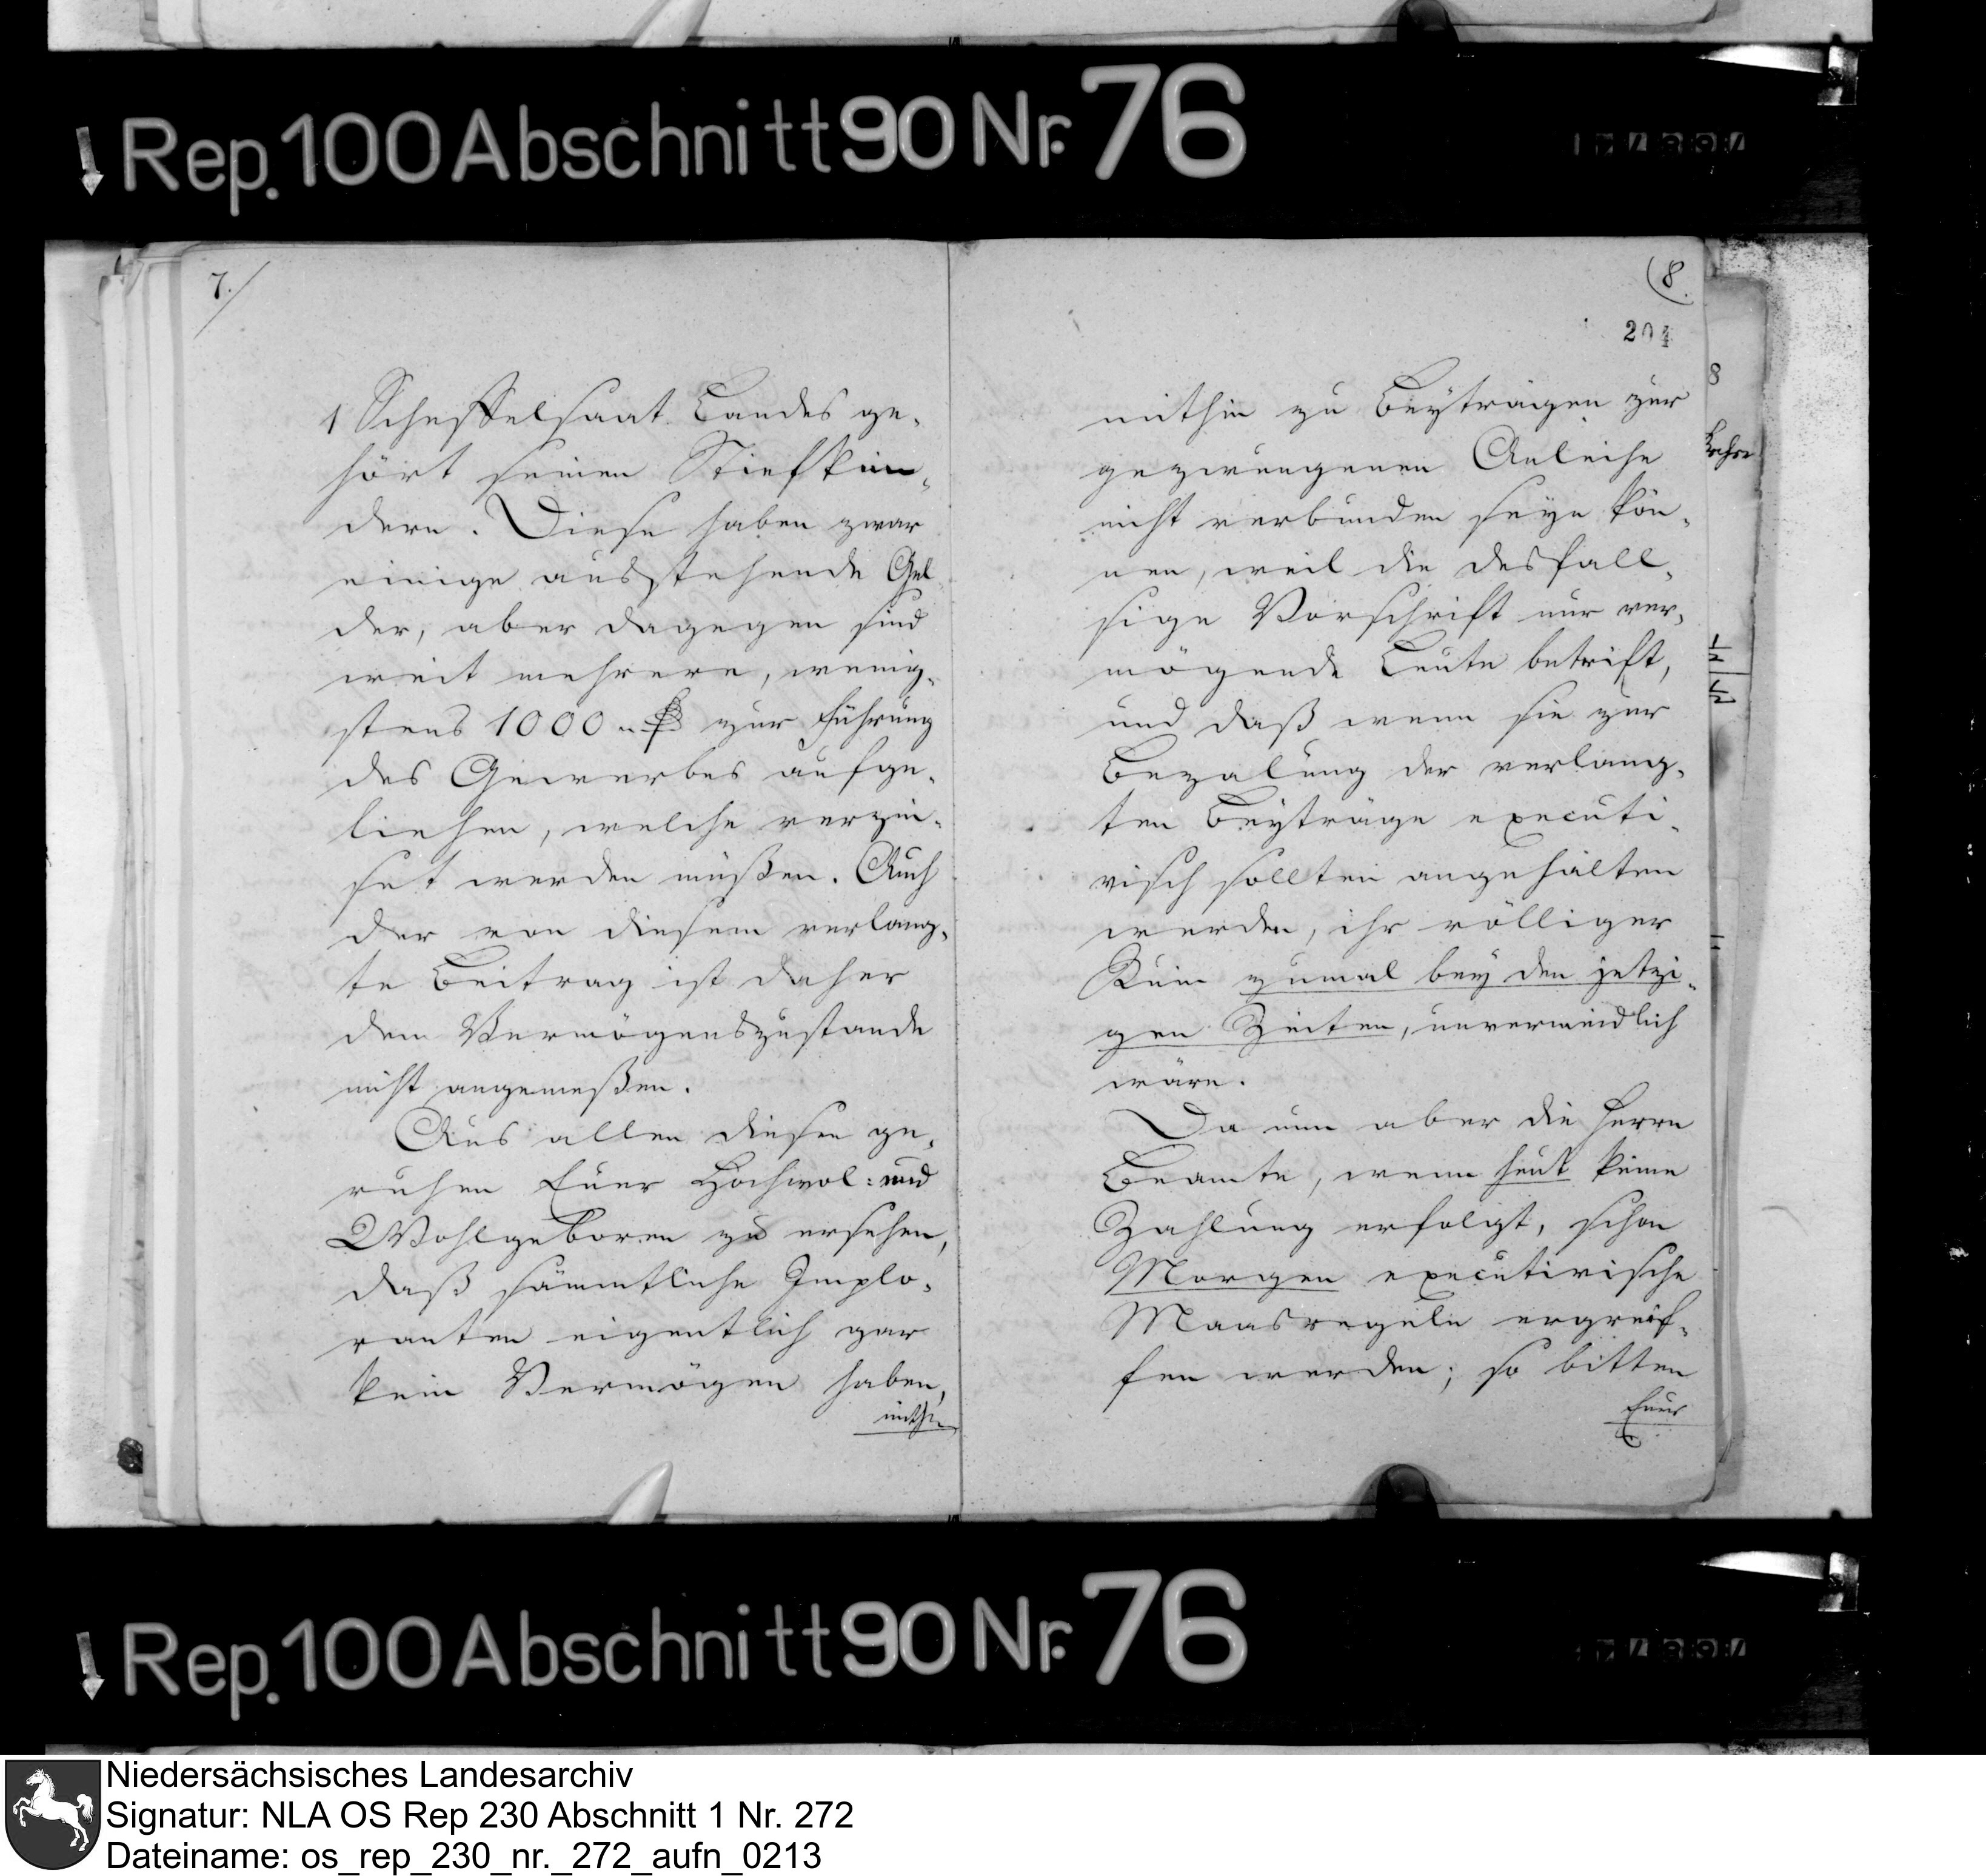 Rep. 100 Abschnitt 90 Nr. 76
7.
1 Scheffelsaat Landes ge-
hört seinen Stiefkin-
dern. Diese haben zwar
einige ausstehende Gel
der, aber dagegen sind
weit mehrere, wenig-
stens 1000 rℓ zur Führung
des Gewerbes aufge-
liehen, welche verzin-
set werden müßen. Auch
der von diesem verlang-
te Beitrag ist daher
dem Vermögenszustande
nicht angemeßen.
Aus allen diesen ge-
ruhen Euer Hochwol: und
Wohlgeboren zu ersehen,
daß sämmtliche Implo-
ranten eigentlich gar
kein Vermögen haben,
mithin
8.
204
mithin zu Beyträgen zur
gezwungenen Anleihe
nicht verbunden seyn kön-
nen, weil die desfall-
sige Vorschrift nur ver-
mögende Leute betrift,
und daß wenn sie zur
Bezalung der verlang-
ten Beyträge executi-
visch sollten angehalten
werden, ihr völliger
Ruin zumal bey den jetzi-
gen Zeiten, unvermeidlich
wäre.
Da nun aber die Herrn
Beamte, wenn heut keine
Zahlung erfolgt, schon
Morgen executivische
Maasregeln ergreif-
fen werden; so bitten
Euer
8
Rep. 100 Abschnitt 90 Nr. 76
Niedersächsisches Landesarchiv
Signatur: NLA OS Rep 230 Abschnitt 1 Nr. 272
Dateiname: os_rep_230_nr._272_aufn_0213